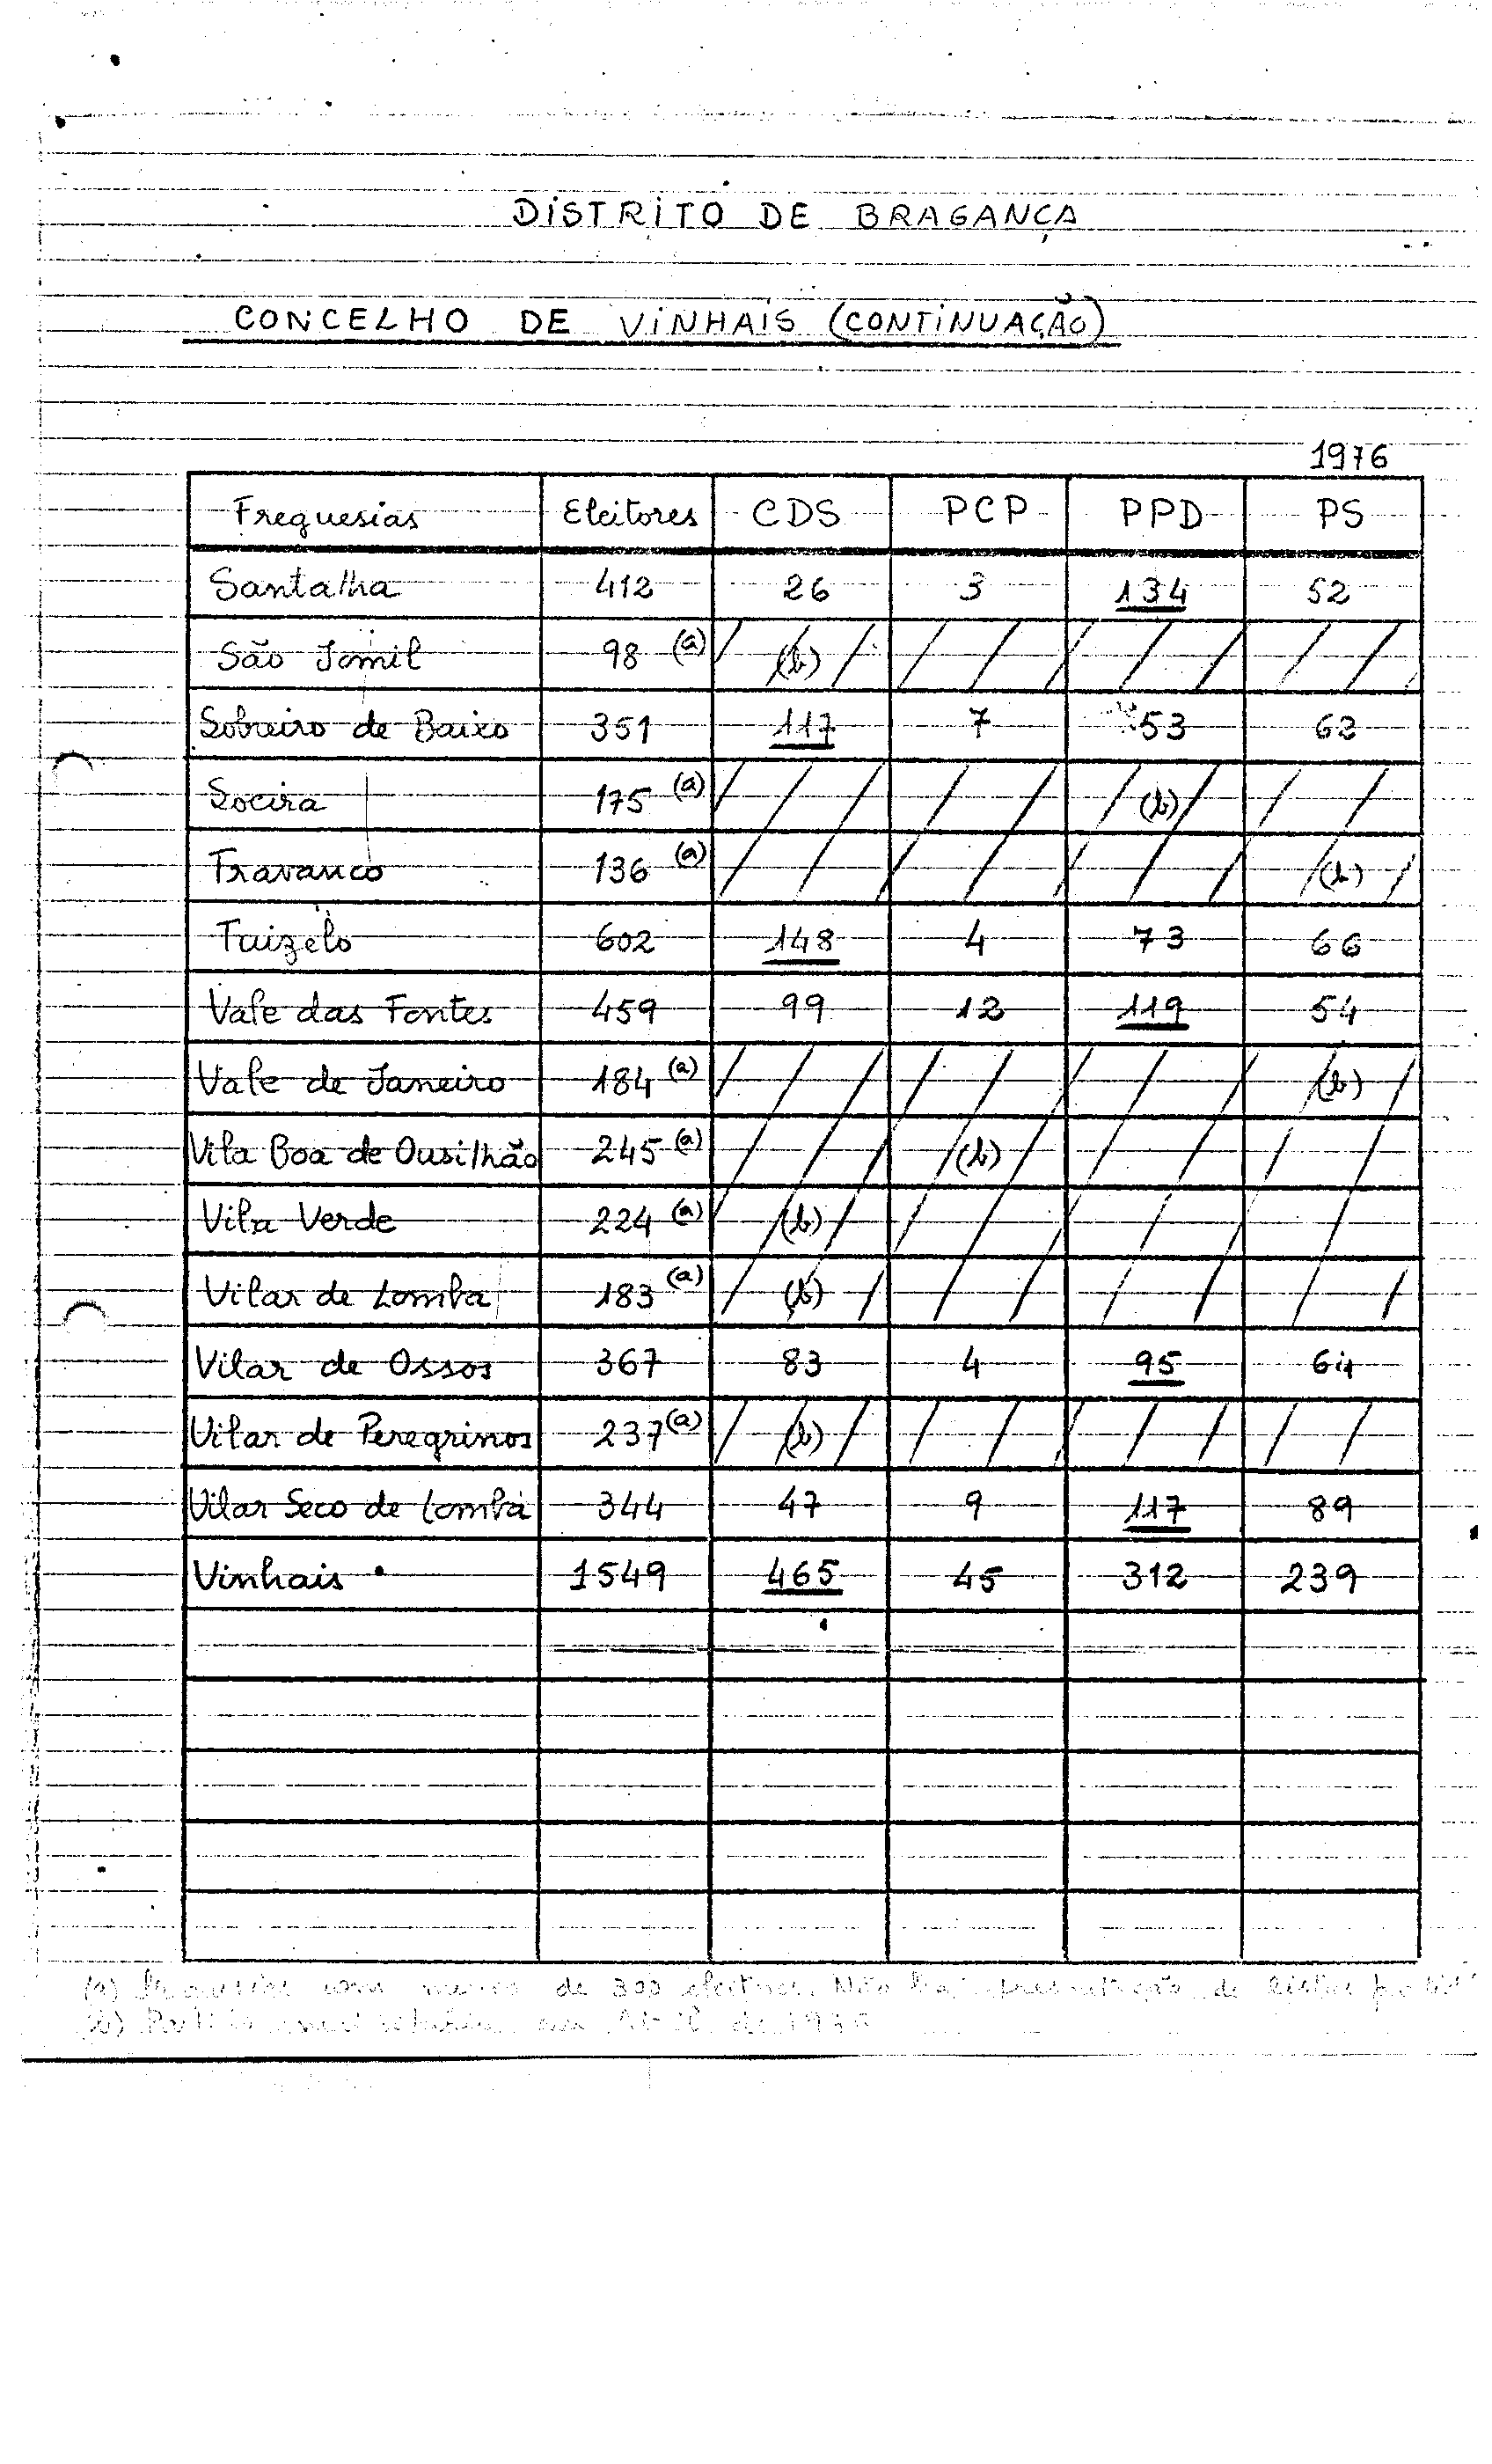 DISTRITO DE BRAGANÇA
CONCELHO DE VINHAIS (CONTINUAÇÃO)
1976
Freguesias Eleitores CDS PCP PPD PS
Santalha 412 26 3 134 52
São Jomil 98 (a) (b)
Sobreiro de Baixo 351 117 7 53 62
Soeira 175 (a) (b)
Travanco 136 (a) (b)
Tuizelo 602 148 4 73 66
Vale das Fontes 459 99 12 119 54
Vale de Janeiro 184 (a) (b)
Vila Boa de Ousilhão 245 (a) (b)
Vila Verde 224 (a) (b)
Vilar de Lomba 183 (a) (b)
Vilar de Ossos 367 83 4 95 64
Vilar de Peregrinos 237 (a) (b)
Vilar Seco de Lomba 344 47 9 117 89
Vinhais 1549 465 45 312 239
(a) de 300 Não de
(b) de